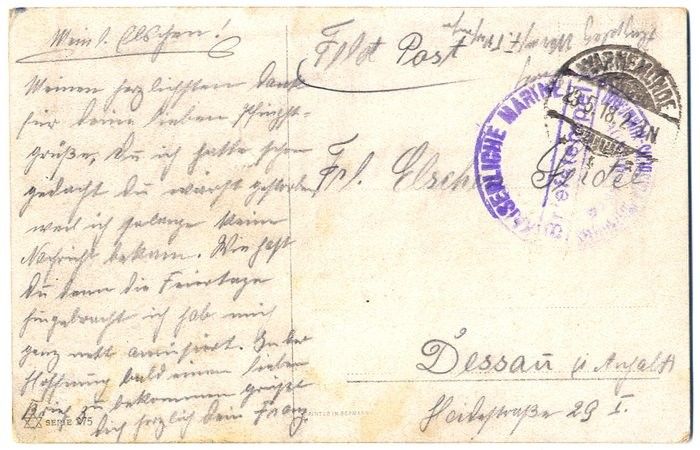 Mein l. Elschen!
Meinen herzlichsten Dank
für deine lieben Pfingst-
grüße. Du ich hatte schon
gedacht du wärst gestorben
weil ich solange keine
Nachricht bekam. Wie hast
Du denn die Feiertage
hingebracht ich hab mich
ganz nett amüsiert. In der
Hoffnung bald einen lieben
Brief zu bekommen grüßt
dich herzlich dein Franz
SERIE 275
PRINTED IN GERMANY
Feldpost
WARNEMÜNDE
23.5.18. 2-3N
KAISERLICHE MARINE
Briefstempel
Frl. Elsche Seidel
Dessau i Anhalt
Heidestraße 29 I.